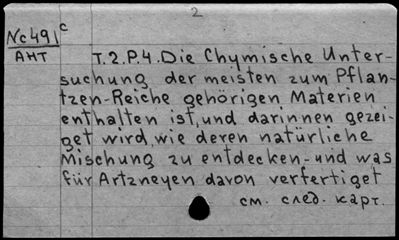 2
Nc491c
АНТ
T.2.P.4. Die Chymische Unter-
suchung der meisten zum Pflan-
tzen-Reiche gehörigen Materien
enthalten ist, und darinnen gezei-
get wird, wie deren natürliche
Mischung zu entdecken-und was
für Artzneyen davon verfertiget
см. след. карт.